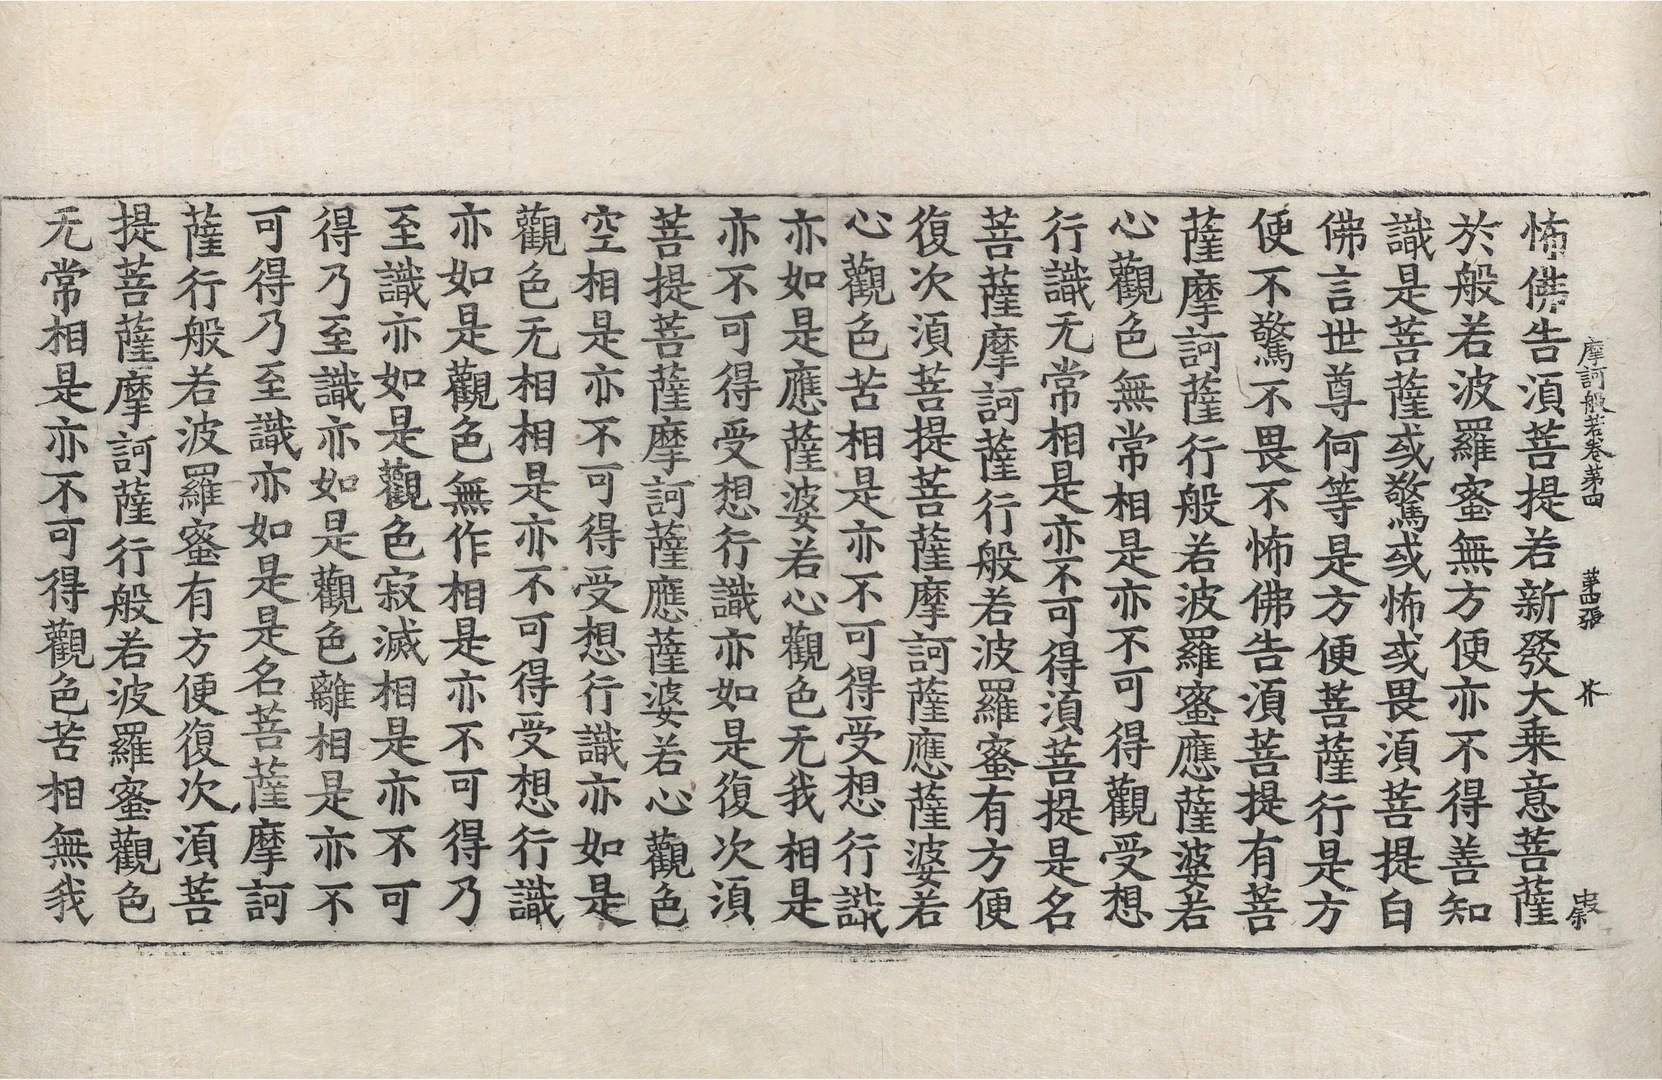 摩訶般若卷第四　第四張　芥
怖佛告須菩提若新發大乗意菩薩
於般若波羅蜜無方便亦不得善知
識是菩薩或驚或怖或畏須菩提白
佛言世尊何等是方便菩薩行是方
便不驚不畏不怖佛告須菩提有菩
薩摩訶薩行般若波羅蜜應薩婆若
心觀色無常相是亦不可得觀受想
行識无常相是亦不可得須菩提是名
菩薩摩訶薩行般若波羅蜜有方便
復次須菩提菩薩摩訶薩應薩婆若
心觀色苦相是亦不可得受想行識
亦如是應薩婆若心觀色无我相是
亦不可得受想行識亦如是復次須
菩提菩薩摩訶薩應薩婆若心觀色
空相是亦不可得受想行識亦如是
觀色无相相是亦不可得受想行識
亦如是觀色無作相是亦不可得乃
至識亦如是觀色寂滅相是亦不可
得乃至識亦如是觀色離相是亦不
可得乃至識亦如是是名菩薩摩訶
薩行般若波羅蜜有方便復次須菩
提菩薩摩訶薩行般若波羅蜜觀色
无常相是亦不可得觀色苦相無我